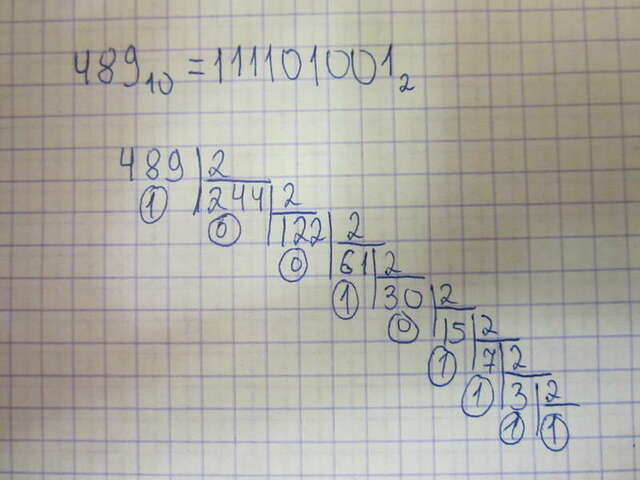 489₁₀ = 111101001₂
489 2
1 244 2
0 122 2
0 61 2
1 30 2
0 15 2
1 7 2
1 3 2
1 1